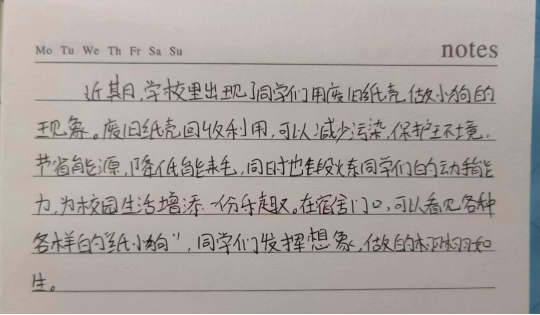 Mo Tu We Th Fr Sa Su notes
近期,学校里出现了同学们用废旧纸壳做小狗的
现象。废旧纸壳回收利用,可以减少污染,保护环境,
节省能源,降低能耗,同时也能锻炼同学们的动手能
力,为校园生活增添一份乐趣。在宿舍门口,可以看见各种
各样的“纸小狗”,同学们发挥想象,做的栩栩如
生。